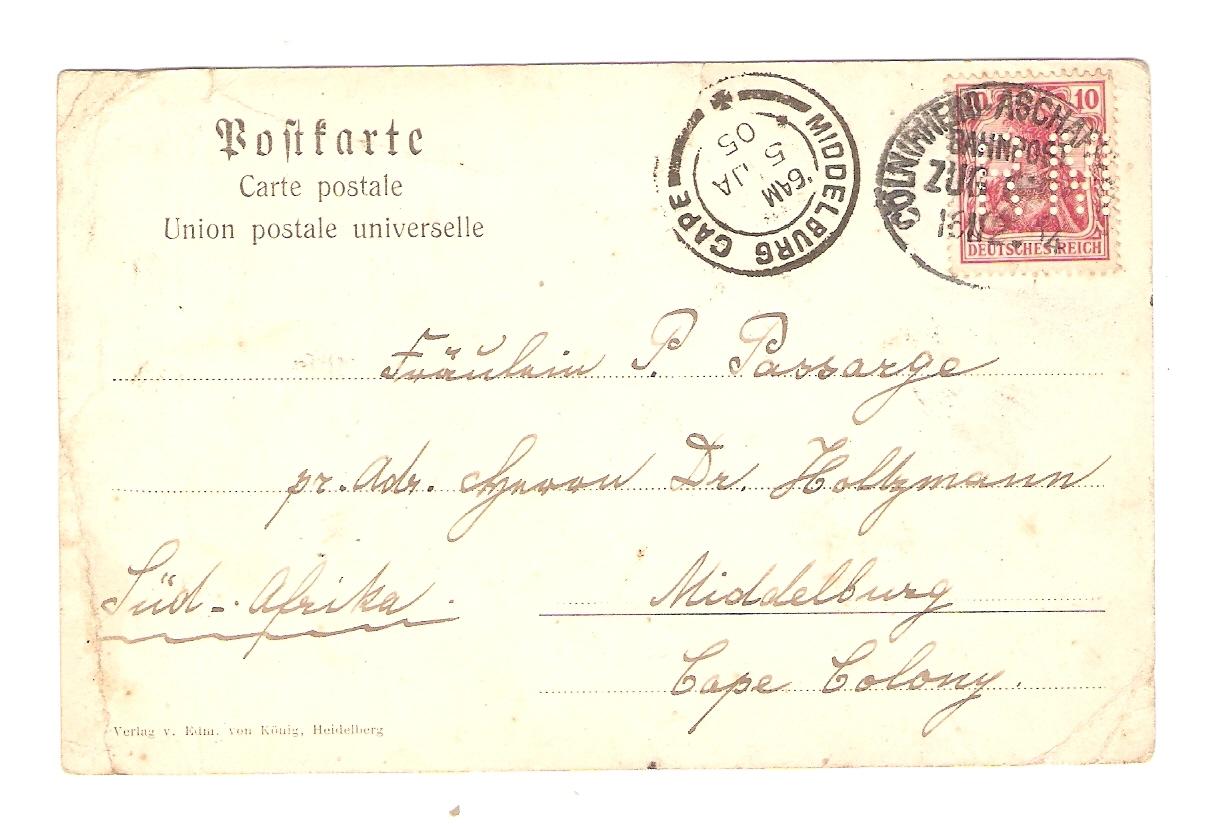 Postkarte
Carte postale
Union postale universelle
MIDDELBURG CAPE
6AM
JA 5
05
CÖLN(RHEIN)-ASCHAF
BAHNPOST
ZUG
10
DEUTSCHES REICH
Fräulein P. Passarge
pr. Adr. Herrn Dr. Holtzmann
Süd-Afrika. Middelburg
Cape Colony.
Verlag v. Edm. von König, Heidelberg